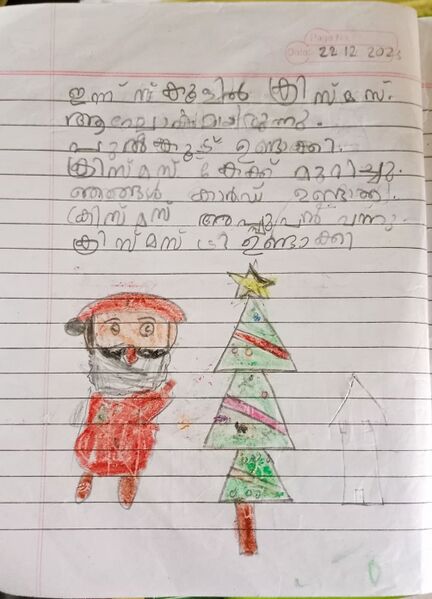 Page No.
Date: 22 12 2023
ഇന്ന് സ്കൂളിൽ ക്രിസ്മസ്
ആഘോഷമായിരുന്നു.
പുൽക്കൂട് ഉണ്ടാക്കി.
ക്രിസ്മസ് കേക്ക് മുറിച്ചു.
ഞങ്ങൾ കാർഡ് ഉണ്ടാക്കി.
ക്രിസ്മസ് അപ്പൂപ്പൻ വന്നു.
ക്രിസ്മസ് ട്രീ ഉണ്ടാക്കി